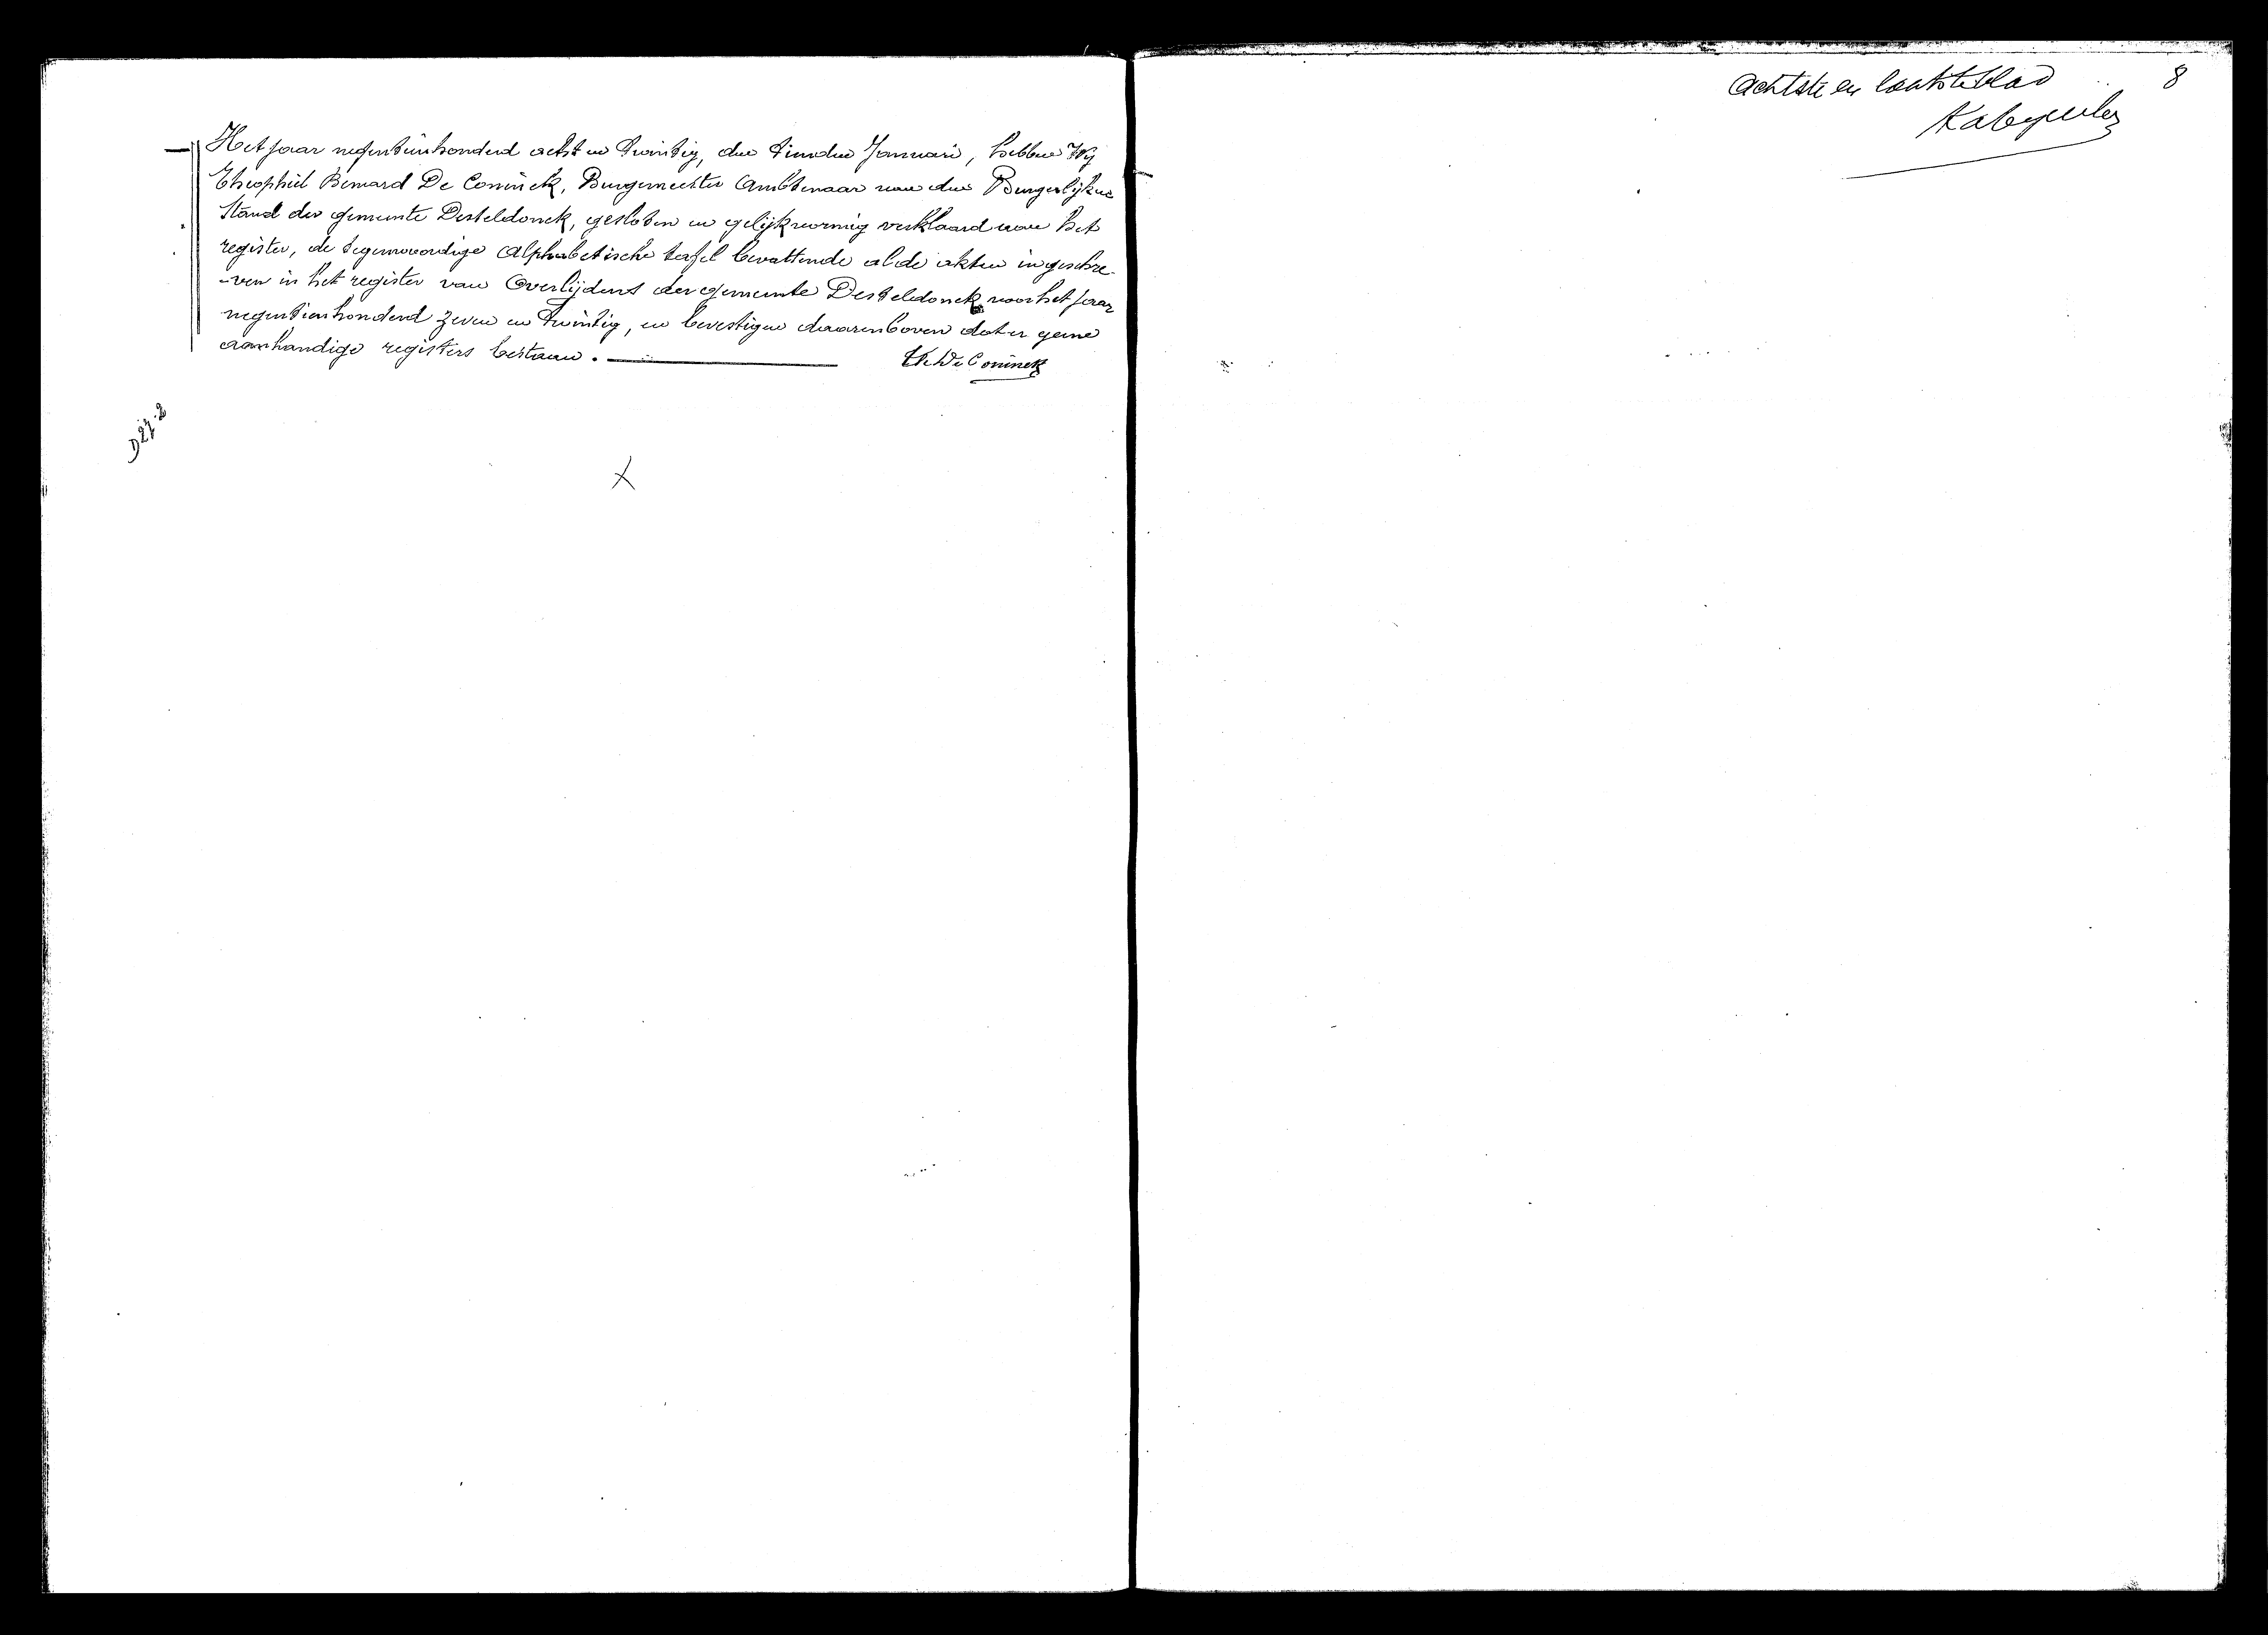 Het jaar negentienhonderd acht en twintig, den tienden Januari, hebben Wij
Theophiel Bernard De Coninck, Burgemeester Ambtenaar van den Burgerlijken
Stand der gemeente Desteldonck, gesloten en gelijkvormig verklaard aan het
register, de tegenwoordige Alphabetische tafel bevattende al de akten ingeschre-
-ven in het register van Overlijdens der gemeente Desteldonck voor het jaar
negentienhonderd zeven en twintig, en bevestigen daarenboven dat er geene
aanhandige registers bestaan.
Th De Coninck
D 27.2
X
Achtste en laatste blad
8